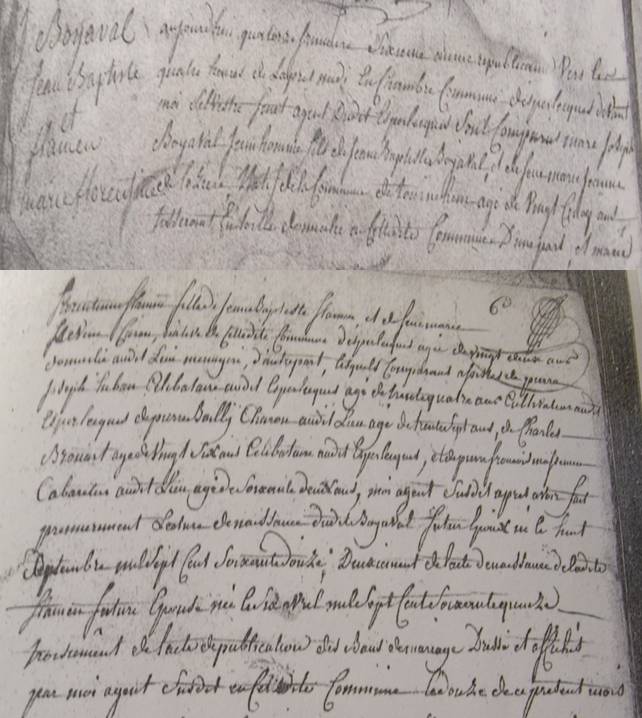 Boyaval
Jean Baptiste
et
flamen
marie florentine
aujourdhui quatorze frimaire sixieme année republicaine vers les
quatre heures de lapres midi En Chambre Commune desperlecques devant
moi Silvestre agent Dudit Esperlecques Sont Comparus marc Joseph
Boyaval Jeun homme fils de Jean Baptiste Boyaval, et de feue marie Jeanne
natif de la Commune de tournehem agé de Vingt Cinq ans
tisserant En toille domicilié a Celledite Commune D'une part, et marie
florentinne flamen fille de Jean Baptiste flamen et de feue marie
Caron, native de Celledite Commune desperlecques agée de vingt deux ans 6e
domicilié audit Lieu menagere, d'autre part, lesquels Comparans assistés de pierre
Joseph Luban Celibataire audit Esperlecques agé de trente quatre ans Cultivateur audit
Esperlecques de pierre Bailly Charon audit Lieu agé de trente sept ans, de Charles
Brouart agé de Vingt Six ans Celibataire audit Esperlecques, et de pierre francois
Cabaretier audit Lieu agé de Soixante deux ans, moi agent Susdit apres avoir fait
premierement Lecture de naissance dudit Boyaval futur Epoux né le huit
Septembre mil Sept Cent Soixante douze, Deuxiement de lacte de naissance de ladite
flamen future Epouse née le Six avril mil Sept Cent Soixante quinze
troisiement de lacte de publication des Bans de mariage Dressé et affiché
par moi agent Susdit en Celledite Commune le douze de ce present mois